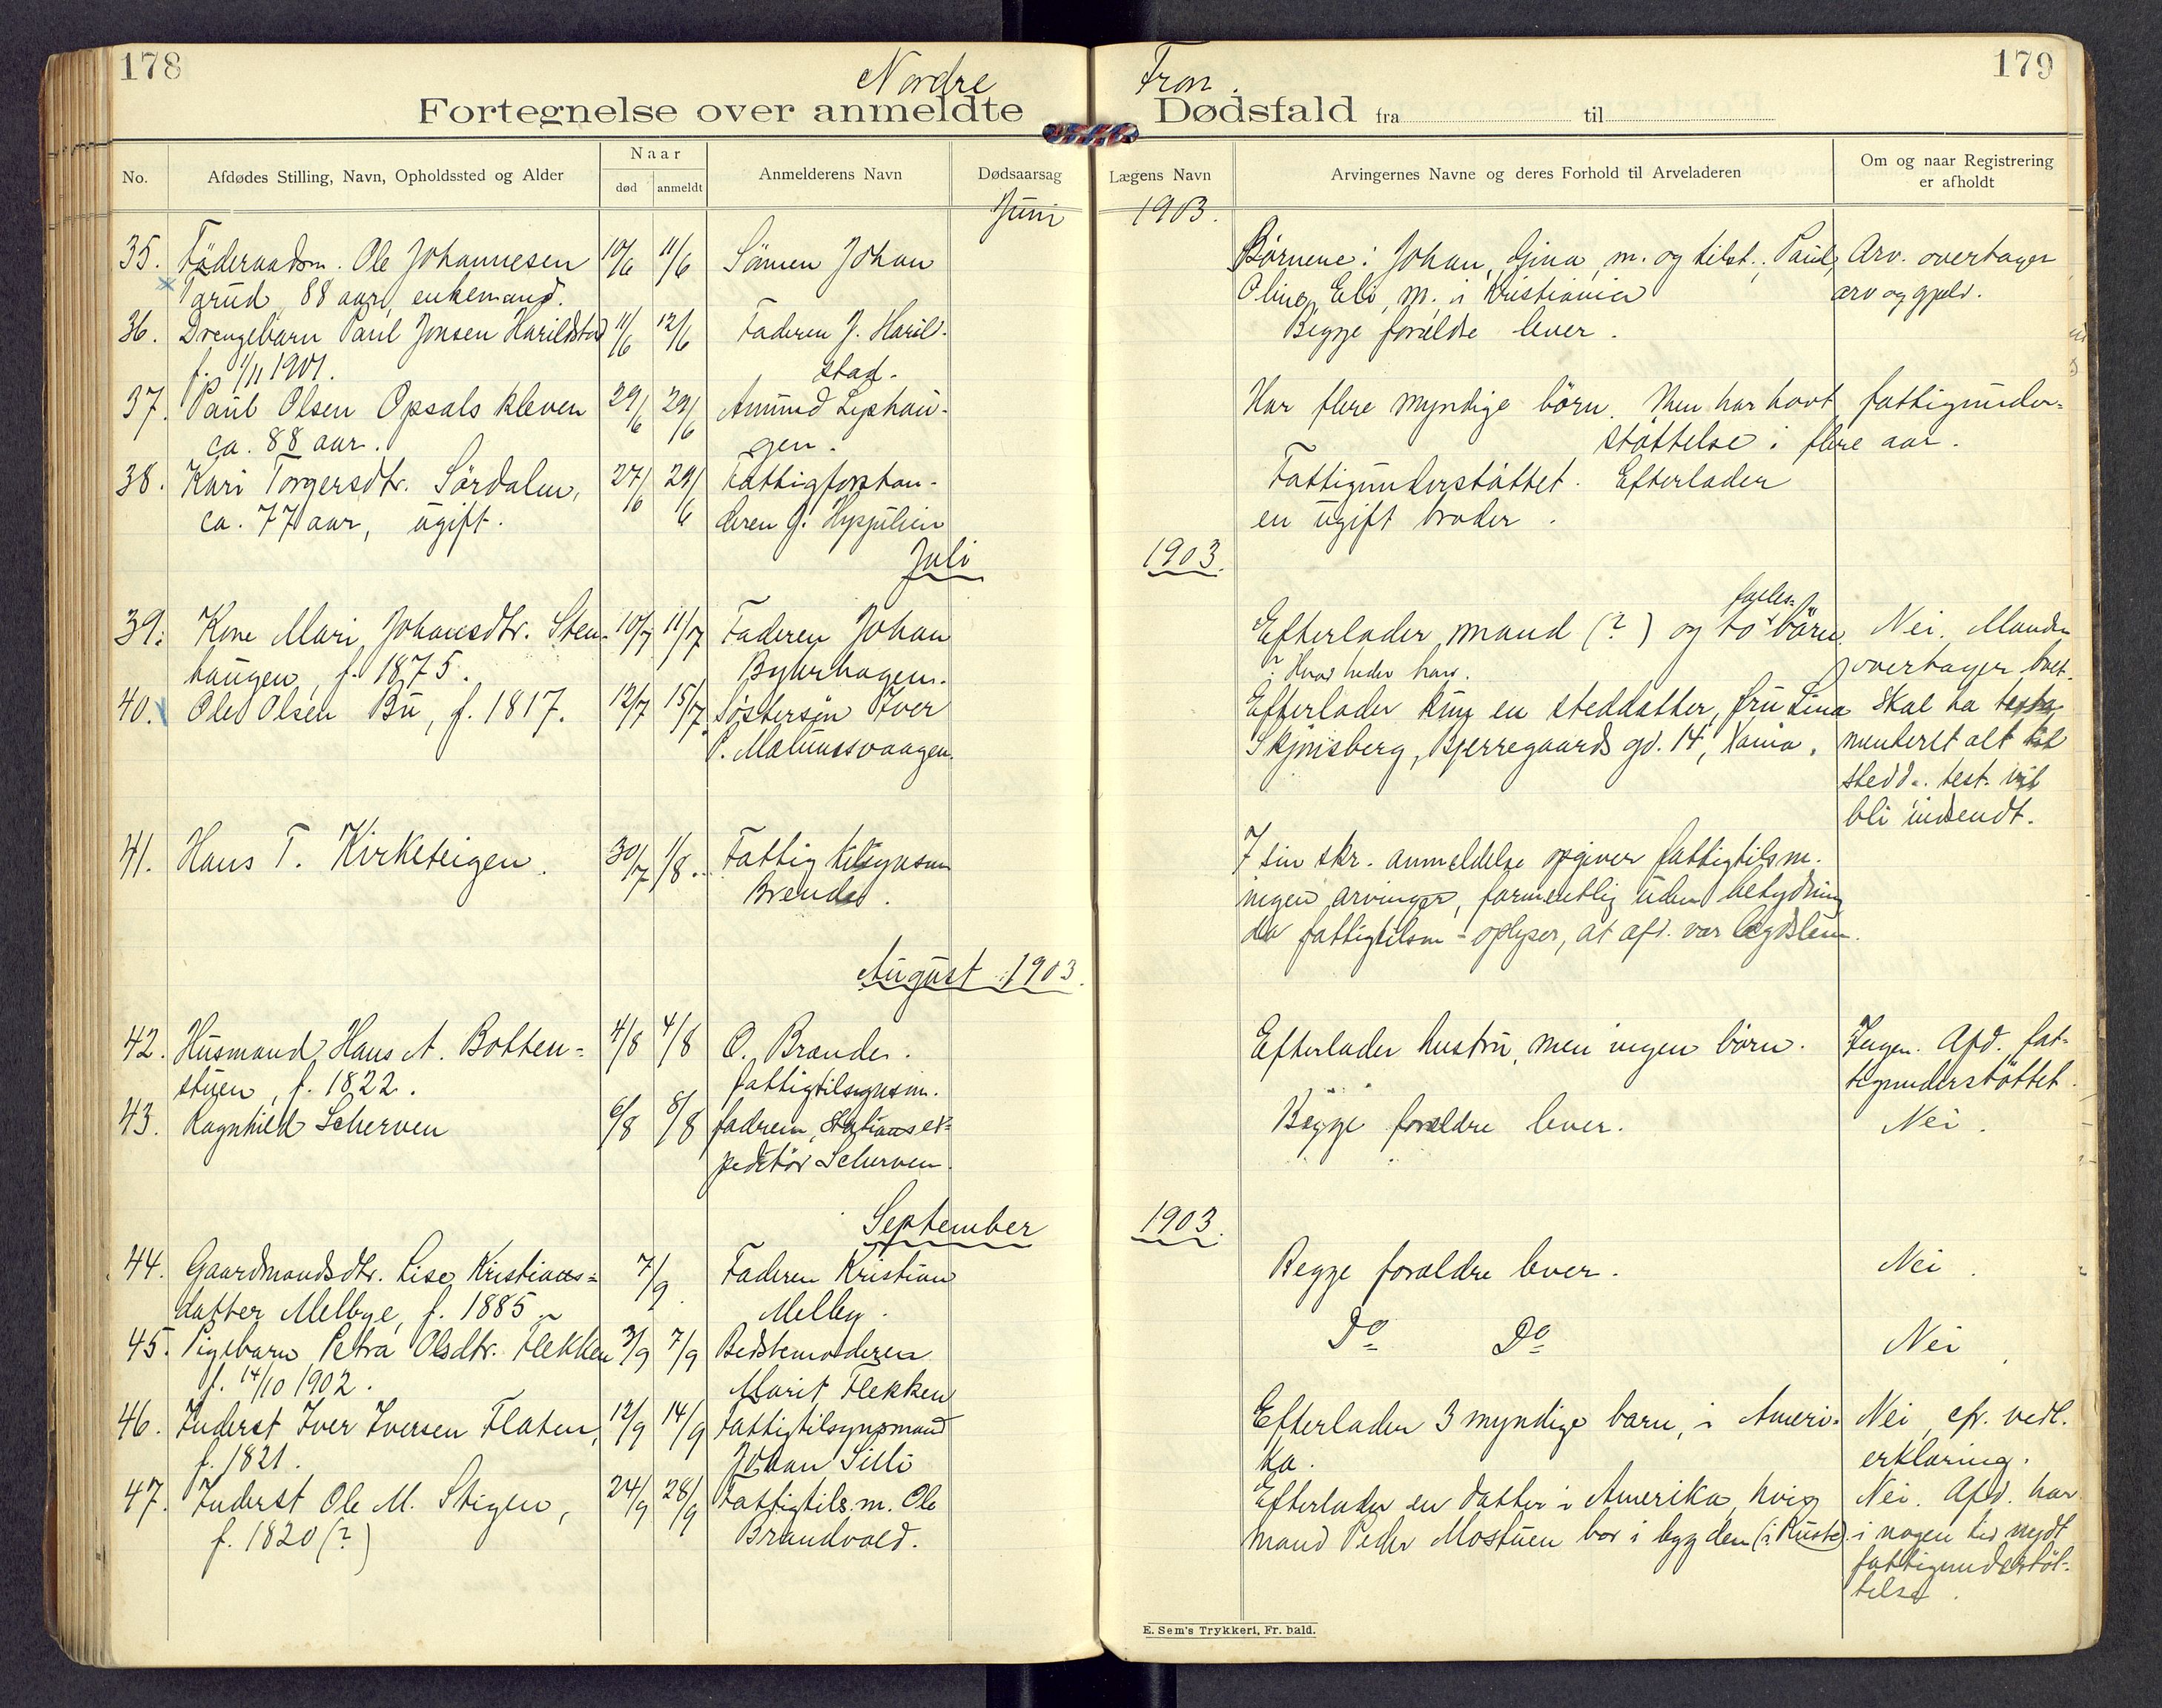 178
179
Nordre Fron.
Fortegnelse over anmeldte Dødsfald fra til
No.
Afdødes Stilling, Navn, Opholdssted og Alder
Naar
død
anmeldt
Anmelderens Navn
Dødsaarsag
Lægens Navn
Arvingernes Navne og deres Forhold til Arveladeren
Om og naar Registrering
er afholdt
Juni 1903.
35. Föderaadsm. Ole Johannesen 10/6 11/6 Sönnen Johan Börnene: Johan, Gina, m. og tilst., Paul, Arv. overtager
88 aar, enkemand. Oline, Eli, m. i Kristiania arv og gjeld.
36. Drengebarn Paul Jonsen Harildstad 11/6 12/6 Faderen J. Haril- Begge forældre lever.
f. 1/11 1901. stad.
37. Paul Olsen Opsalskleven 29/6 29/6 Amund Har flere myndige börn. Men har havt fattigunder-
ca. 88 aar. gen. støttelse i flere aar.
38. Kari Torgersdtr. Sördalen, 27/6 29/6 Fattigforstan- Fattigunderstøttet. Efterlader
ca. 77 aar, ugift. deren en ugift broder.
Juli 1903.
fælles-
39. Kone Mari Johansdtr. Sten- 10/7 11/7 Faderen Johan Efterlader mand (?) og to börn. Nei. Manden
haugen, f. 1875. ? Hvad heder han. overtager boet.
40. Ole Olsen Bu, f. 1817. 12/7 15/7 Søstersøn Iver Efterlader kun en steddatter, fru Lina Skal ha testa
P. Skjønsberg, Bjerregaards gd. 14, Kania. menteret alt til
stedd. test. vil
bli indsendt.
41. Hans T. Kirketeigen. 30/7 1/8. Fattigtilsynsm I sin skr. anmeldelse opgiver fattigtilsm.
ingen arvinger, formentlig uden betydning
da fattigtilsm. oplyser, at afd. var lægdslem.
August 1903.
42. Husmand Hans A. Botten- 4/8 4/8 O. Efterlader hustru, men ingen börn. Ingen. Afd. fat-
stuen, f. 1822. fattigtilsynsm. tigunderstöttet.
43. Ragnhild Scherven 6/8 8/8 fadren, Stationsex- Begge forældre lever. Nei.
peditör Scherven.
September 1903.
44. Gaardmandsdtr. Lise Kristians- 7/9. Faderen Kristian Begge forældre lever. Nei.
datter Melbye, f. 1885. Melby.
45. Pigebarn Petra Olsdtr. Flekken 3/9 7/9 Bedstemoderen Do Do Nei.
f. 14/10 1902. Marit Flekken
46. Inderst Iver Iversen Flaten, 12/9 14/9 Fattigtilsynsmand Efterlader 3 myndige barn, i Ameri- Nei, cfr. vedl.
f. 1821. Johan Silli ka. erklæring.
47. Inderst Ole M. Stigen, 24/9 28/9 Fattigtils.m. Ole Efterlader en datter i Amerika, hvis Nei. Afd. har
f. 1820 (?) Brandvold. mand Peder Mostuen bor i bygden (i Ruste). i nogen tid nydt
fattigunderstöt-
telse.
E. Sem's Trykkeri, Fr. hald.